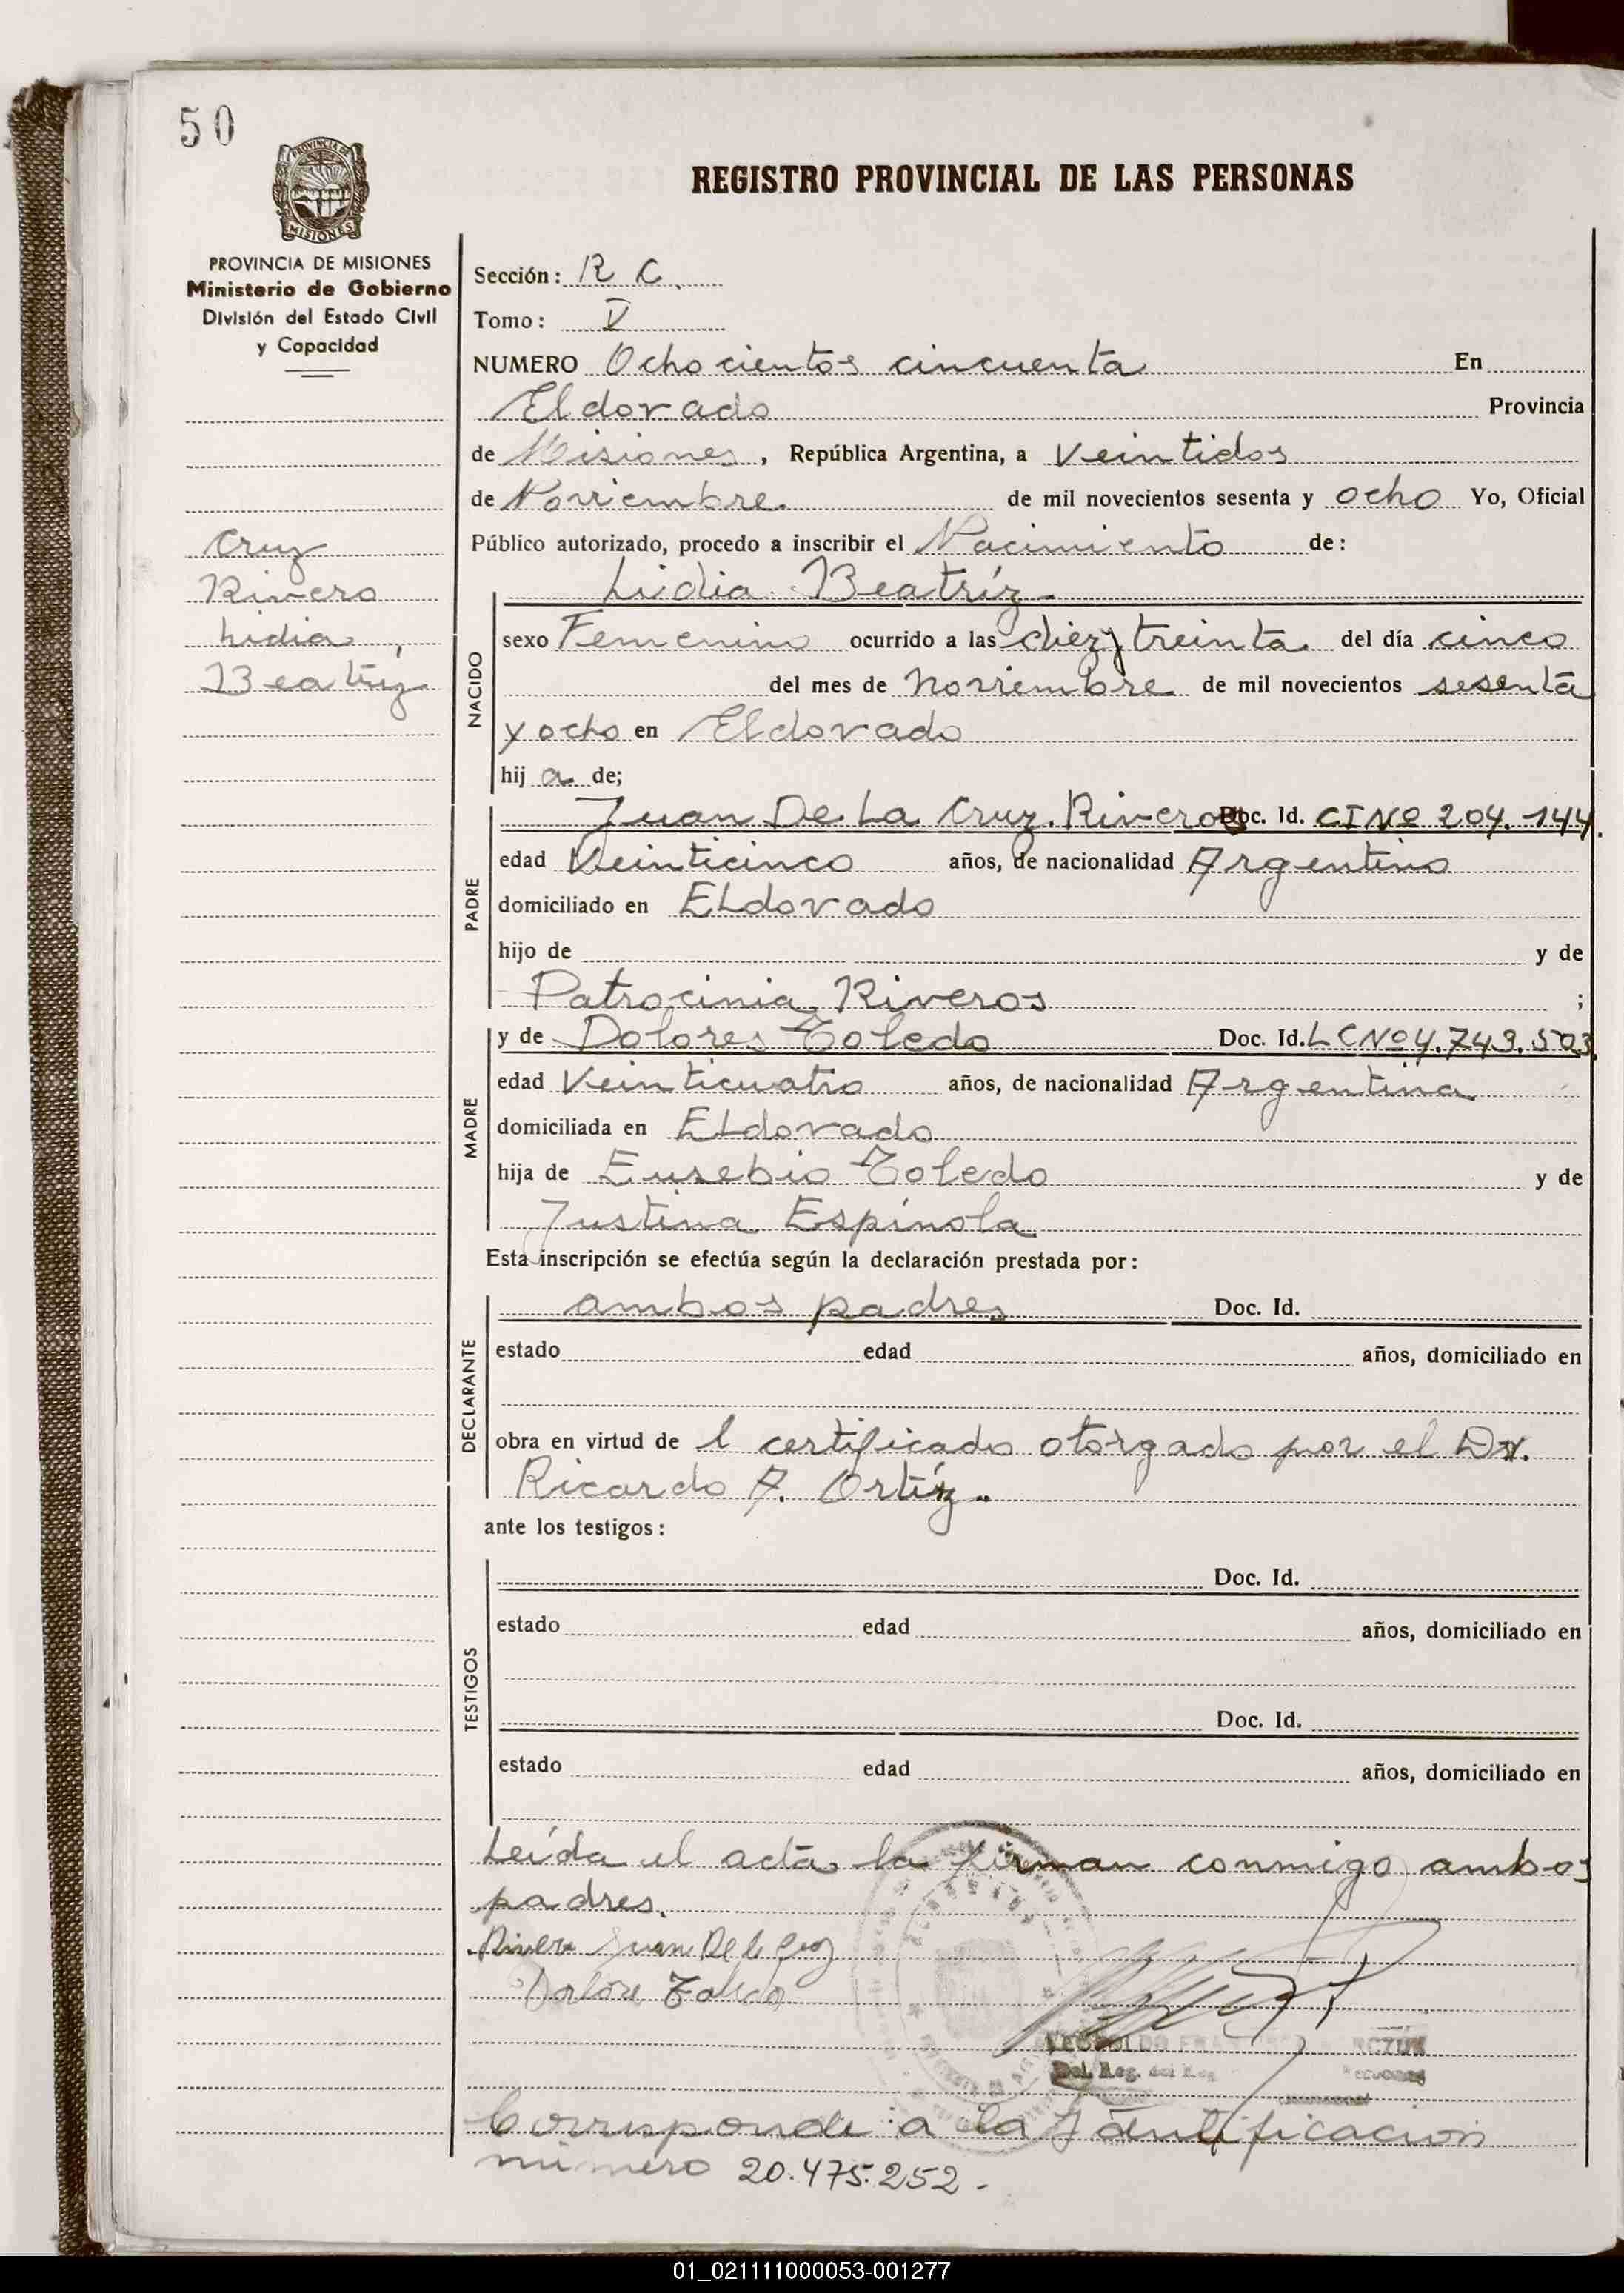 50
PROVINCIA DE
MISIONES
PROVINCIA DE MISIONES
Ministerio de Gobierno
División del Estado Civil
y Capacidad
REGISTRO PROVINCIAL DE LAS PERSONAS
Sección: R C.
Tomo: V
NUMERO Ochocientos cincuenta En
Eldorado Provincia
de Misiones, República Argentina, a Veintidos
de Noviembre. de mil novecientos sesenta y ocho Yo, Oficial
Público autorizado, procedo a inscribir el Nacimiento de:
Cruz
Rivero
Lidia,
Beatríz
NACIDO
Lidia Beatríz-
sexo Femenino ocurrido a las diez y treinta del día cinco
del mes de noviembre de mil novecientos sesenta
y ocho en Eldorado
hij a de;
PADRE
Juan De La Cruz Riveros Doc. Id. CI Nº 204.144.
edad Veinticinco años, de nacionalidad Argentino
domiciliado en ELdorado
hijo de y de
Patrocinia Riveros ;
MADRE
y de Dolores Toledo Doc. Id. LC Nº 4.743.503.
edad Veinticuatro años, de nacionalidad Argentina
domiciliada en ELdorado
hija de Eusebio Toledo y de
Justina Espínola
Esta inscripción se efectúa según la declaración prestada por:
DECLARANTE
ambos padres Doc. Id.
estado edad años, domiciliado en
obra en virtud de l certificado otorgado por el Dr.
Ricardo A. Ortíz.
ante los testigos:
TESTIGOS
Doc. Id.
estado edad años, domiciliado en
Doc. Id.
estado edad años, domiciliado en
Leída el acta, la firman conmigo ambos
padres.
Rivero Juan De la Cruz
Dolore Toledo
Del. Reg. del
Personas
Corresponde a la Identificacion
numero 20.475.252-
01_021111000053-001277